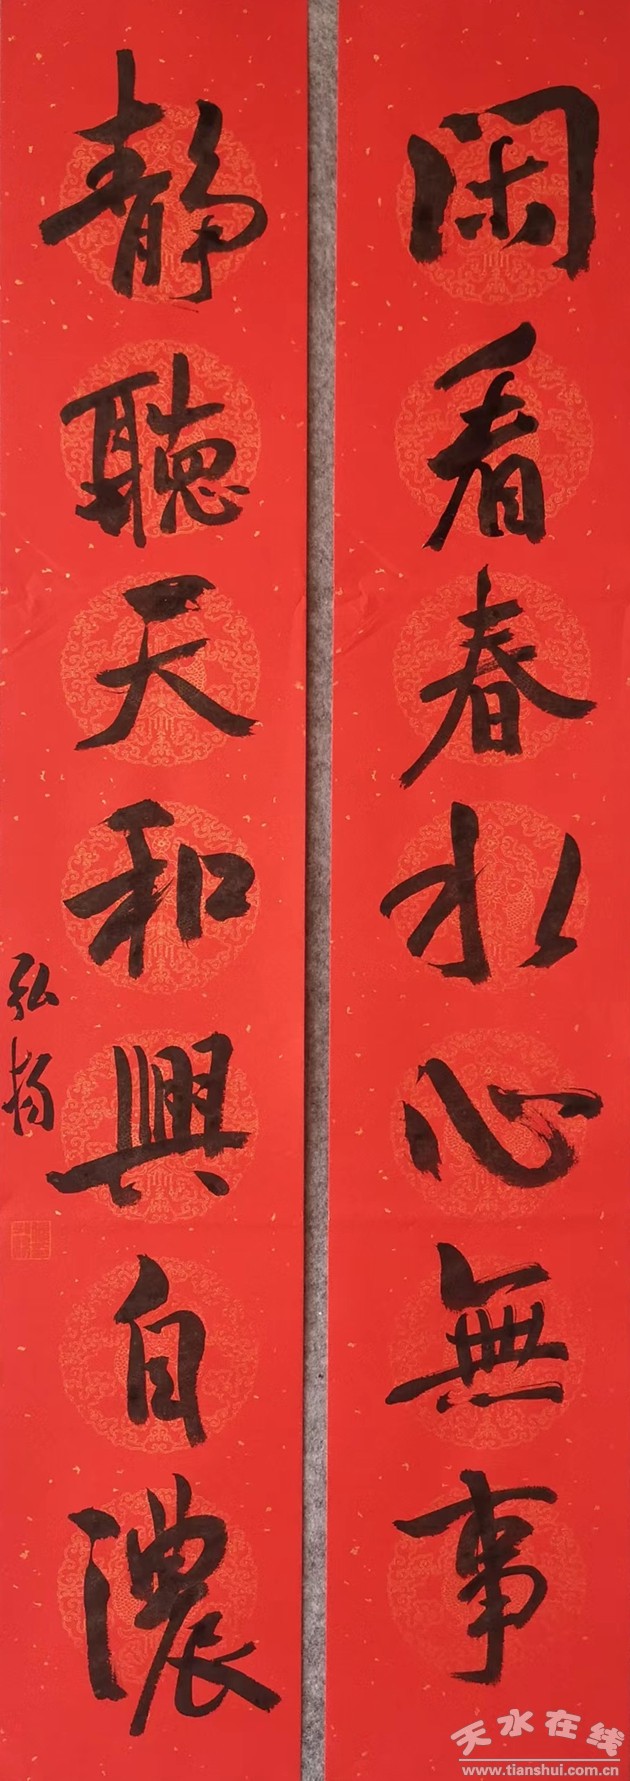 闲看春水心無事
静聽天和興自濃
弘揚
天水在线
www.tianshui.com.cn